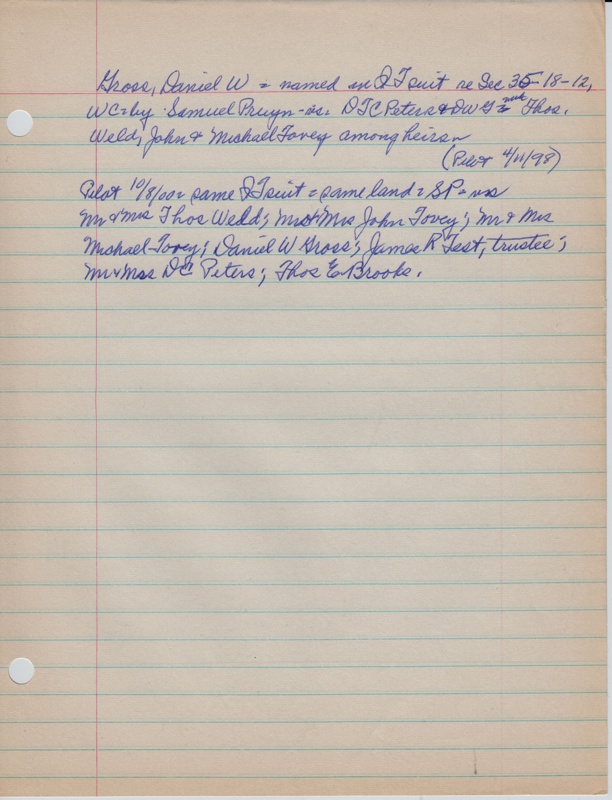 Gross, Daniel W = named in QT suit re Sec 35-18-12,
WC = by Samuel Pruyn - vs. DTC Peters & DWG = Thos.
Weld, John & Michael Tovey among heirs
(Pilot 4/11/98)
Pilot 10/8/00 = same QT suit = same land = SP = vs
Mr & Mrs Thos Weld; Mr & Mrs John Tovey; Mr & Mrs
Michael Tovey; Daniel W Gross; James R Test, trustee;
Mr & Mrs DC Peters; Thos E Brooks.